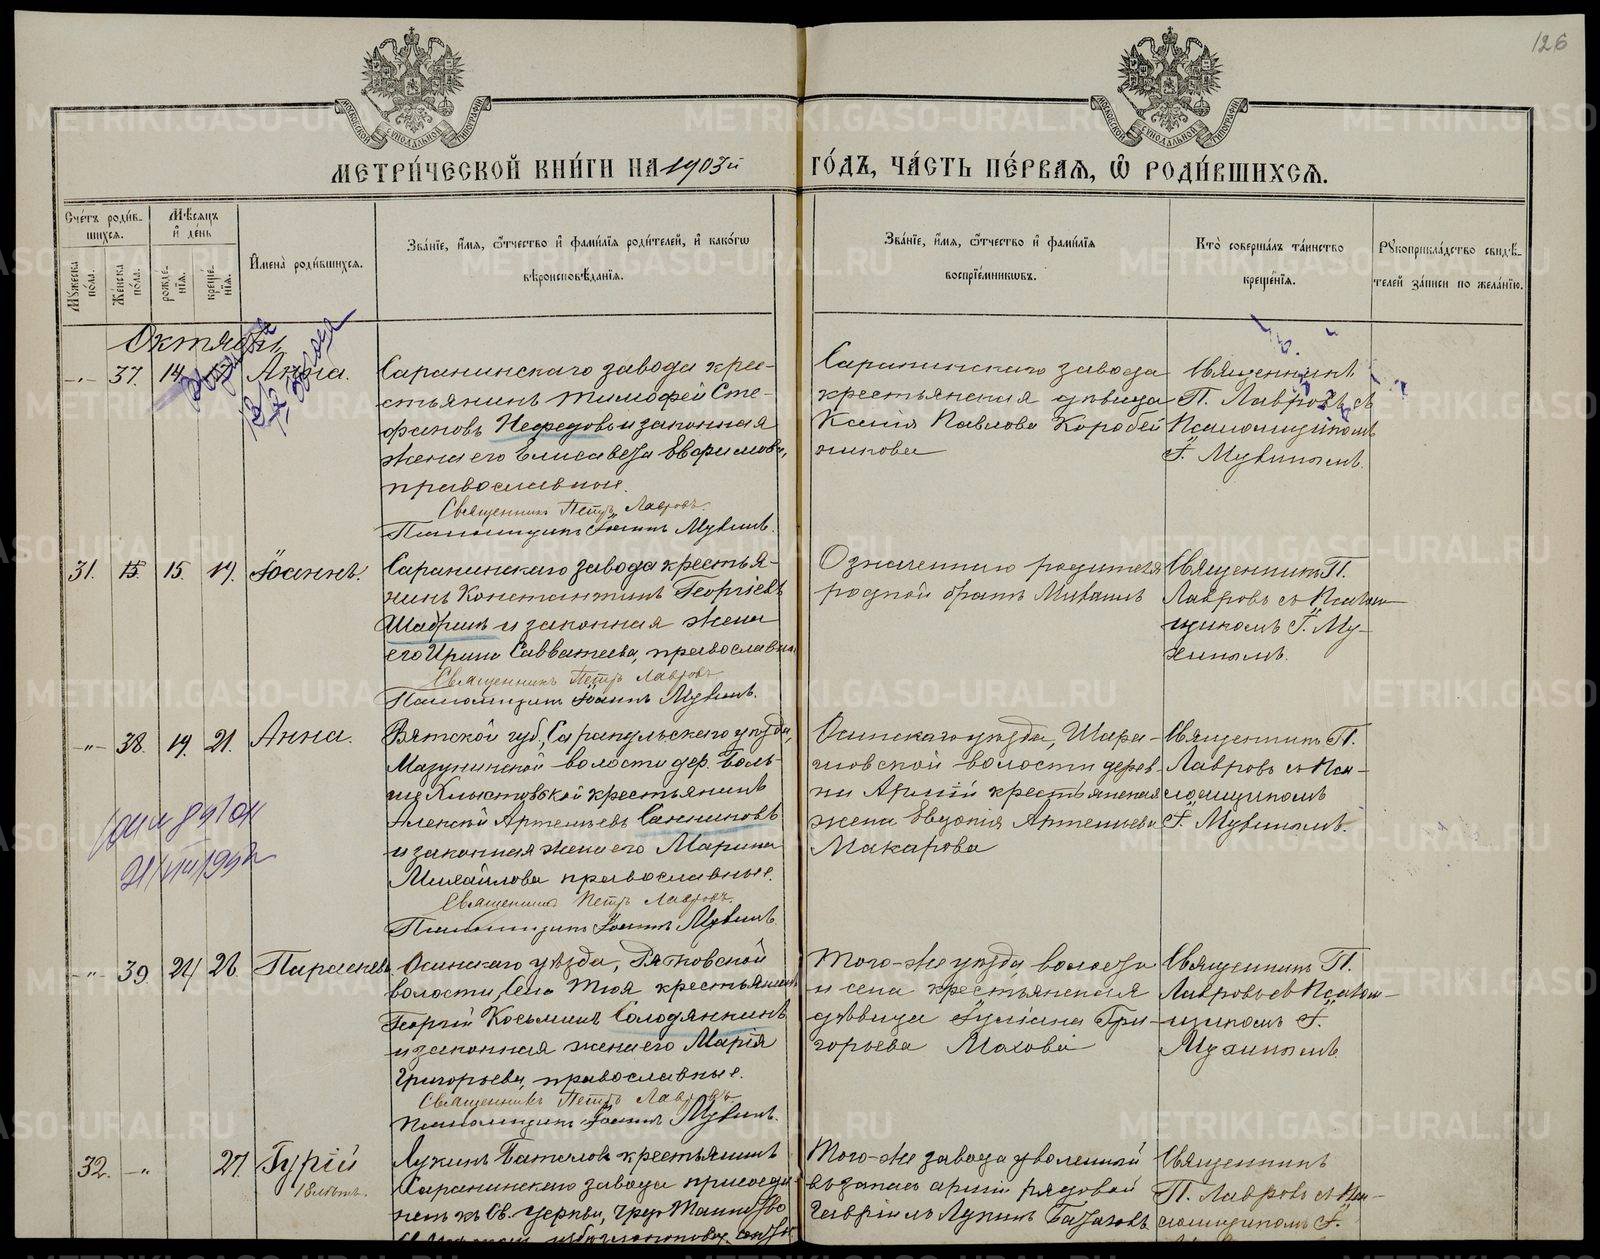 126
МЕТРИ́ЧЕСКОЙ КНИ́ГИ НА 1903й ГО́ДЪ, ЧА́СТЬ ПЕ́РВАЯ, Ѽ РОДИ́ВШИХСЯ.
Сче́тъ роди́в-
шихся.
Му́жеска по́ла.
Же́нска по́ла.
Мѣ́сяцъ
и҆ де́нь
рожде́-
нїя.
креще́-
нїя.
И҆мена̀ роди́вшихся.
Зва́нїе, и҆́мя, ѻ҆́тчество и҆ фами́лїя роди́телей, и҆ како́гѡ
вѣроисповѣ́данїя.
Зва́нїе, и҆́мя, ѻ҆́тчество и҆ фами́лїя
воспрїе́мникѡвъ.
Кто̀ соверша́лъ та́инство
креще́нїя.
Рꙋкоприкла́дство свидѣ́-
телей за́писи по жела́нїю.
Октябрь
-"- 37. 14. Анна.
Саранинскаго завода кре-
стьянинъ Тимофей Сте-
фановъ Нефедовъ и законная
жена его Елисавета Евфимова,
православные.
Священникъ Петръ Лавровъ.
Псаломщикъ Іоаннъ Мухинъ.
Саранинскаго завода
крестьянская дѣвица
Ксенія Павлова Коробей
никова
Священникъ
П. Лавровъ съ
Псаломщикомъ
І. Мухинымъ.
31. 15. 15. 19. Іоаннъ.
Саранинскаго завода крестья-
нинъ Константинъ Георгіевъ
Шавринъ и законная жена
его Ирина Савватеева, православные
Священникъ Петръ Лавровъ
Псаломщикъ Іоаннъ Мухинъ.
Означеннаго родителя
родной братъ Михаилъ
Священникъ П.
Лавровъ съ Псалом-
щикомъ І. Му-
хинымъ.
-"- 38. 19. 21. Анна.
Вятской губ., Сарапульскаго уѣзда,
Мазунинской волости дер. Боль-
крестьянинъ
Алексѣй Артемьевъ Санниковъ
и законная жена его Марина
Михайлова православные.
Священникъ Петръ Лавровъ.
Псаломщикъ Іоаннъ Мухинъ.
Осинскаго уѣзда,
волости дерев-
ни Аряжъ крестьянская
жена Евдокія Артемьева
Макарова
Священникъ П.
Лавровъ съ Пса-
ломщикомъ
І. Мухинымъ.
21/VII/1952
-"- 39. 24 26. Параскева
Осинскаго уѣзда,
волости, села Тюя крестьянинъ
Георгій Косьминъ Солодянкинъ
и законная жена его Марія
Григорьева, православные.
Священникъ Петръ Лавровъ
Псаломщикъ Іоаннъ Мухинъ.
Того-же уѣзда волости
и села крестьянская
дѣвица Іуліана Гри-
горьева Махова
Священникъ П.
Лавровъ съ Псалом-
щикомъ І.
Мухинымъ.
32. -"- 27. Гурій
18 лѣтъ.
Лукинъ Баталовъ крестьянинъ
Саранинскаго завода присоеди-
ненъ къ Св. церкви, чрез Таинство
Того-же завода уволенный
въ запасъ арміи рядовой
Гавріилъ Лукинъ Баталовъ
Священникъ
П. Лавровъ съ Пса-
ломщикомъ І.
METRIKI.GASO-URAL.RU